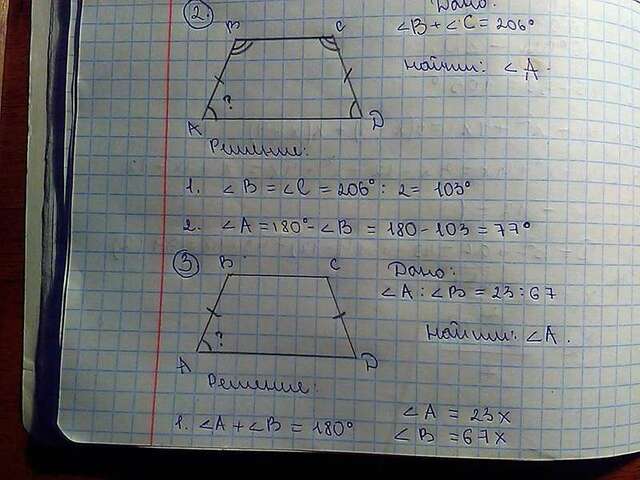 2.
Дано:
∠B + ∠C = 206°
Найти: ∠A.
B C
?
A D
Решение:
1. ∠B = ∠C = 206° : 2 = 103°
2. ∠A = 180° - ∠B = 180 - 103 = 77°
3
B C
Дано:
∠A : ∠B = 23 : 67
Найти: ∠A.
?
A D
Решение:
1. ∠A + ∠B = 180°
∠A = 23x
∠B = 67x